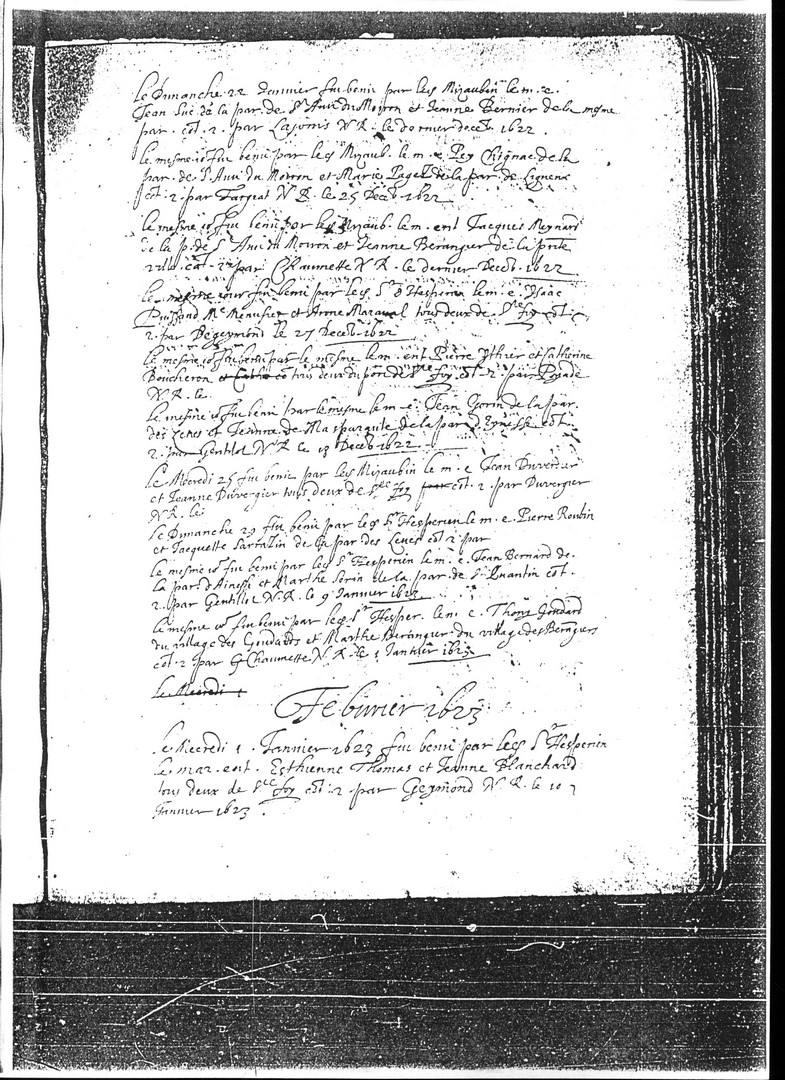 Le Dimanche 22 Janvier fut beni par led Mizaubin le m. e.
Jean Luc de la par. de St Avit du Moiron et Jeanne Bernier de la mesme
par. cot. 2. par Lajonis N R. le dernier deceb. 1622.
le mesme io fut beni par led Mizaub. le m. e. Pey Chignac de la
par. de St Avit du Moiron et Marie Paget de la par. de Ligneux
cot. 2. par Fargeat N R. le 25 Deceb 1622
le mesme io fut beni par led Mizaub. le m. ent Jacques Meynard
de la p. de St Avit du Moiron et Jeanne Beranger de la
cot. 2 par Chaumette N R. le dernier Deceb. 1622
le mesme iour fut beni par led Sr d'Hesperien le m. e. Isaac
Puiffond Me Menusier et Anne Maraval tous deux de Ste foy cot.
2. par Degeymond le 27 Deceb 1622
le mesme io fut beni par le mesme le m. ent Pierre Ythier et Catherine
Boucheron tous deux du de Ste foy cot. 2. par
N R. le
le mesme io fut beni par le mesme le m. e. Jean de la par.
des Leves et Jeanne de Maspuraute de la par d'Eynesse cot.
2. par Gentilot N R. le 13 Deceb 1622
Le Mecredi 25 fut beni par led Mizaubin le m. e Jean Duvergier
et Jeanne Duvergier tous deux de Ste Foy cot. 2. par Duvergier
N R. le
Le Dimanche 29 fut beni par led Sr Hesperien le m. e. Pierre Roubin
et Jacquette Sarrazin de la par des Leves cot 2 par
le mesme io fut beni par led Sr Hesperien le m. e. Jean Bernard de
la par. d'Ainesse et Marthe Sorin de la par. de St Quantin cot.
2. par Gentillot N. R. le 9 Janvier 1623
le mesme io fut beni par led Sr Hesper. le m. e. Thony Goudard
du village des Goudards et Marthe Beranger du village des Berangers
cot. 2 par G Chaumette N R. le 5 Janvier 1623
le Mecredi 1
Febvrier 1623
Le Mecredi 1. Janvier 1623 fut beni par led Sr Hesperien
le mar. ent. Esthienne Thomas et Jeanne Blanchard
tous deux de Ste foy cot. 2 par Geymond N R. le 10
Janvier 1623.